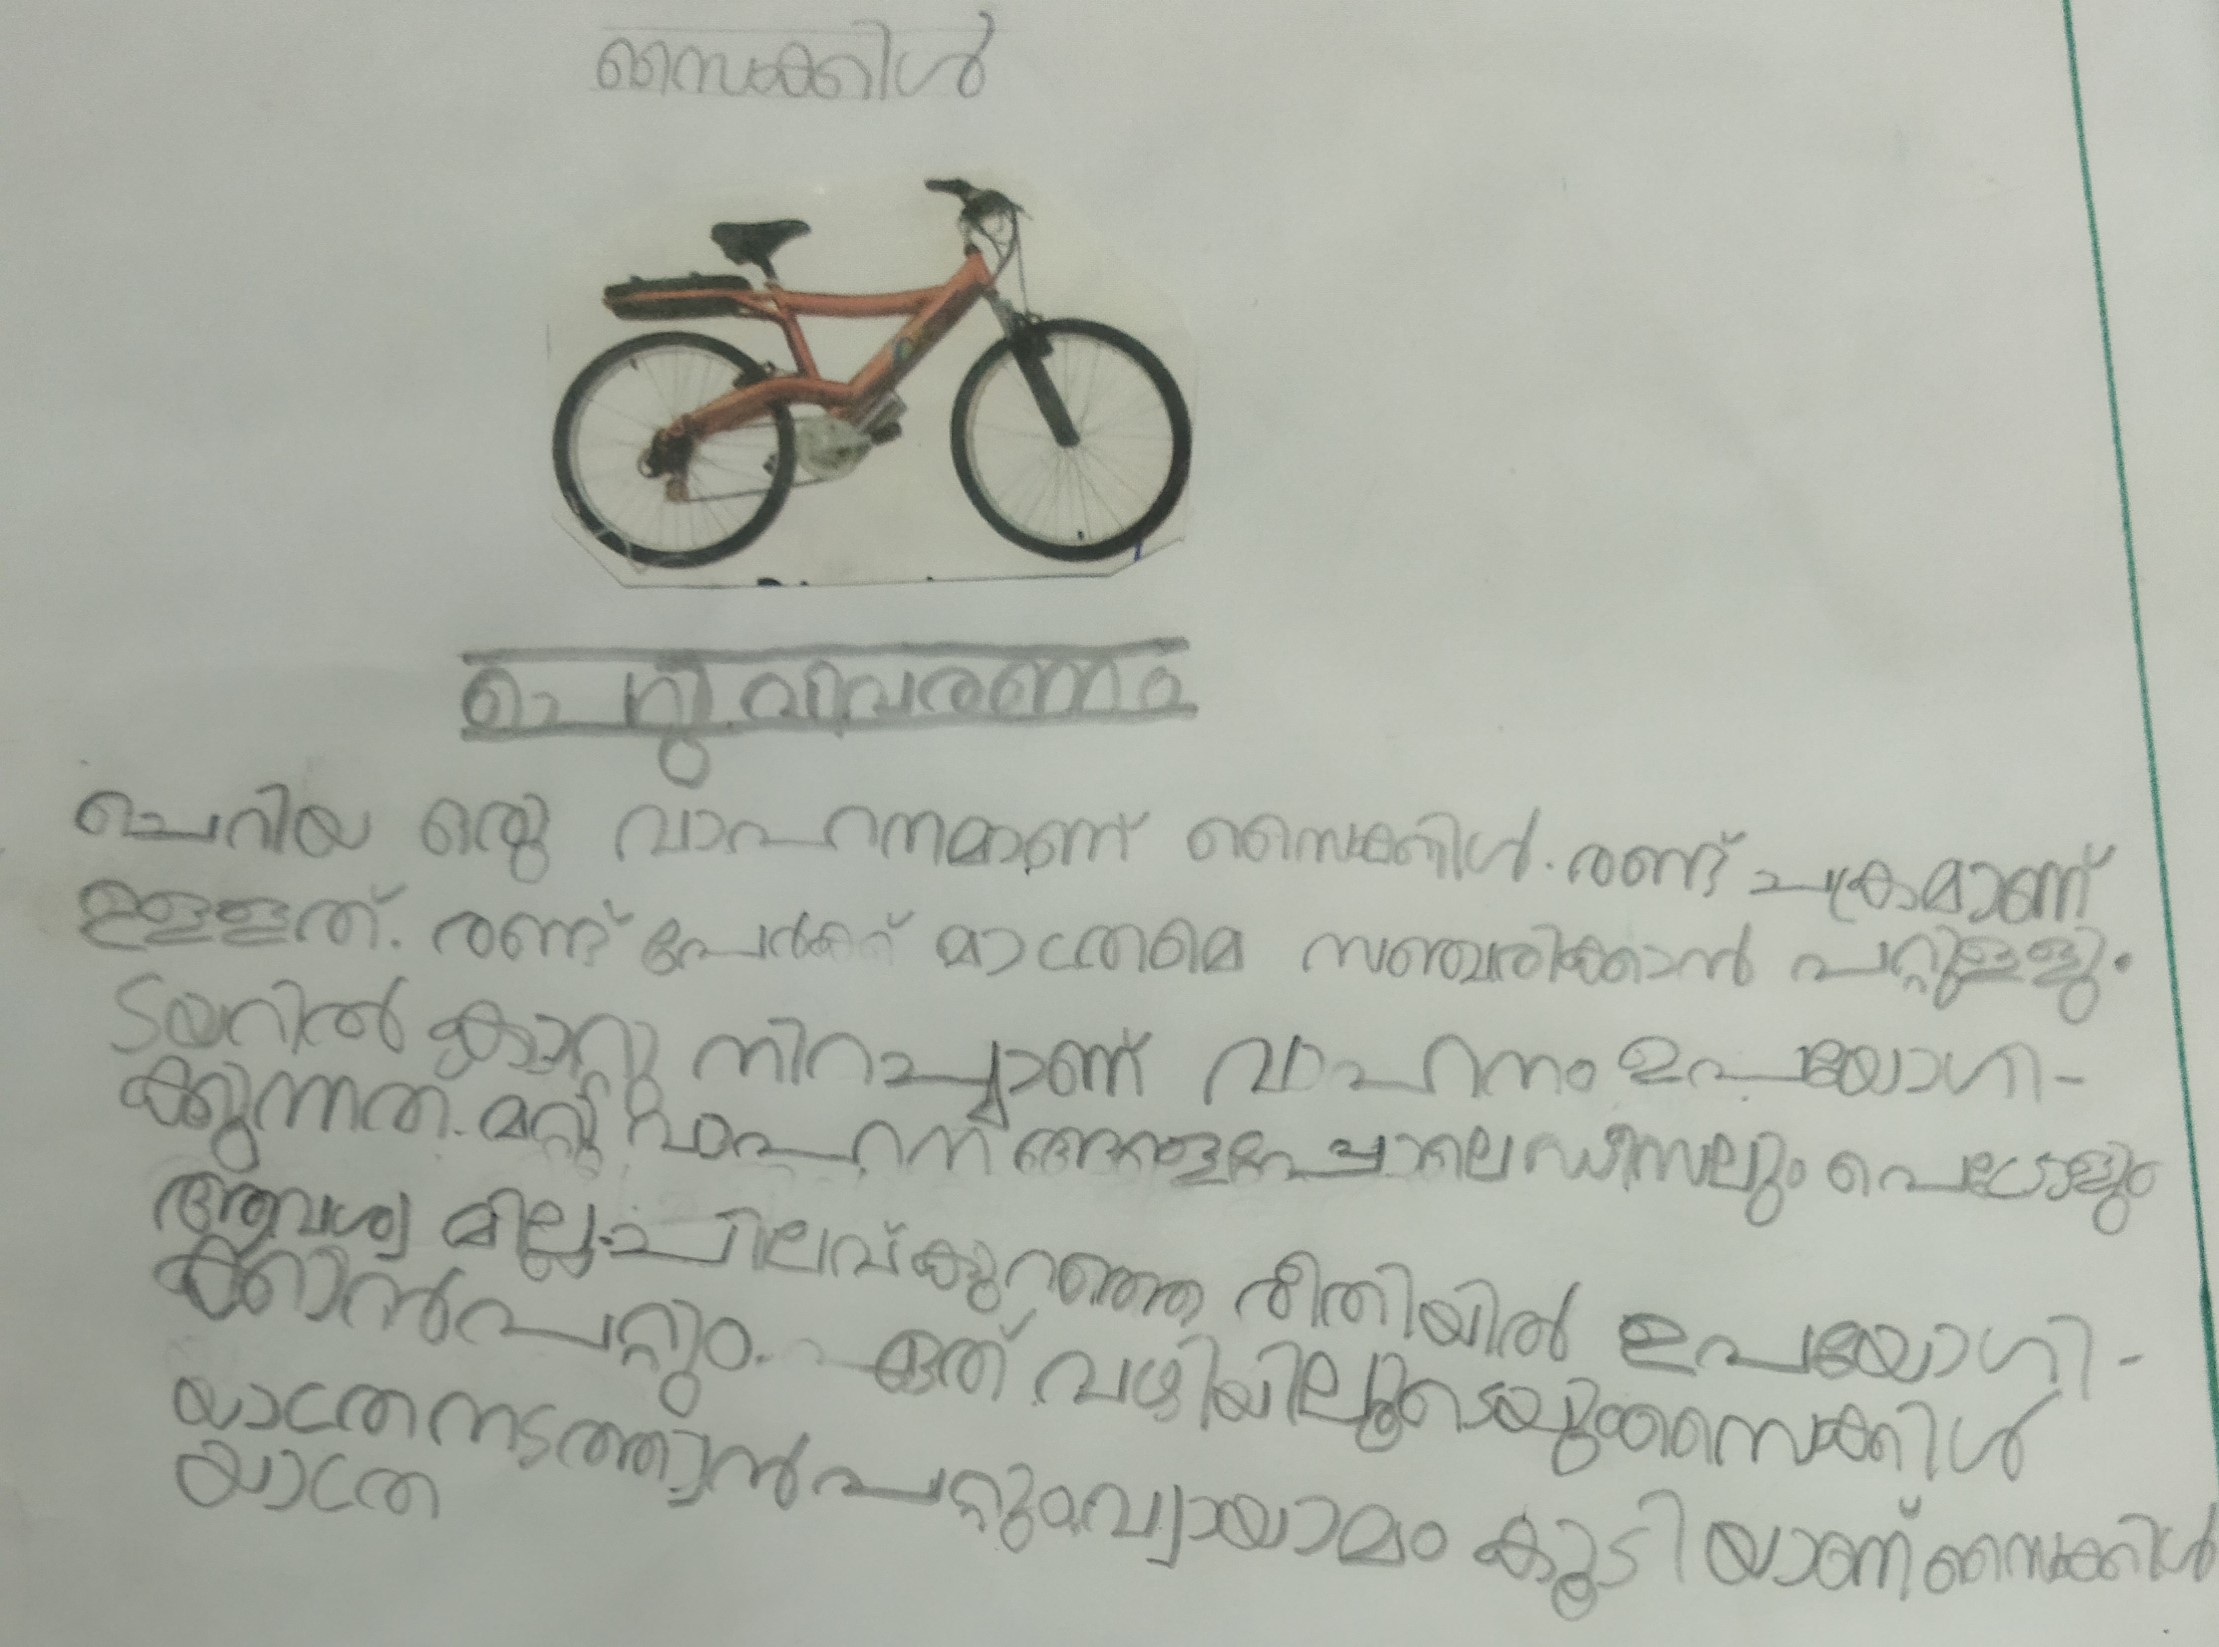 സൈക്കിൾ
ചെറു വിവരണം
ചെറിയ ഒരു വാഹനമാണ് സൈക്കിൾ. രണ്ട് ചക്രമാണ്
ഉള്ളത്. രണ്ട് പേർക്ക് മാത്രമെ സഞ്ചരിക്കാൻ പറ്റുള്ളു.
ടയറിൽ കാറ്റു നിറച്ചാണ് വാഹനം ഉപയോഗി-
ക്കുന്നത. മറ്റു വാഹനങ്ങളെപ്പോലെ ഡീസലും പെട്രോളും
ആവശ്യമില്ല. ചിലവ്കുറഞ്ഞ രീതിയിൽ ഉപയോഗി-
ക്കാൻപറ്റും. ഏത് വഴിയിലൂടെയും സൈക്കിൾ
യാത്ര നടത്താൻ പറ്റും. വ്യായാമം കൂടിയാണ് സൈക്കിൾ
യാത്ര